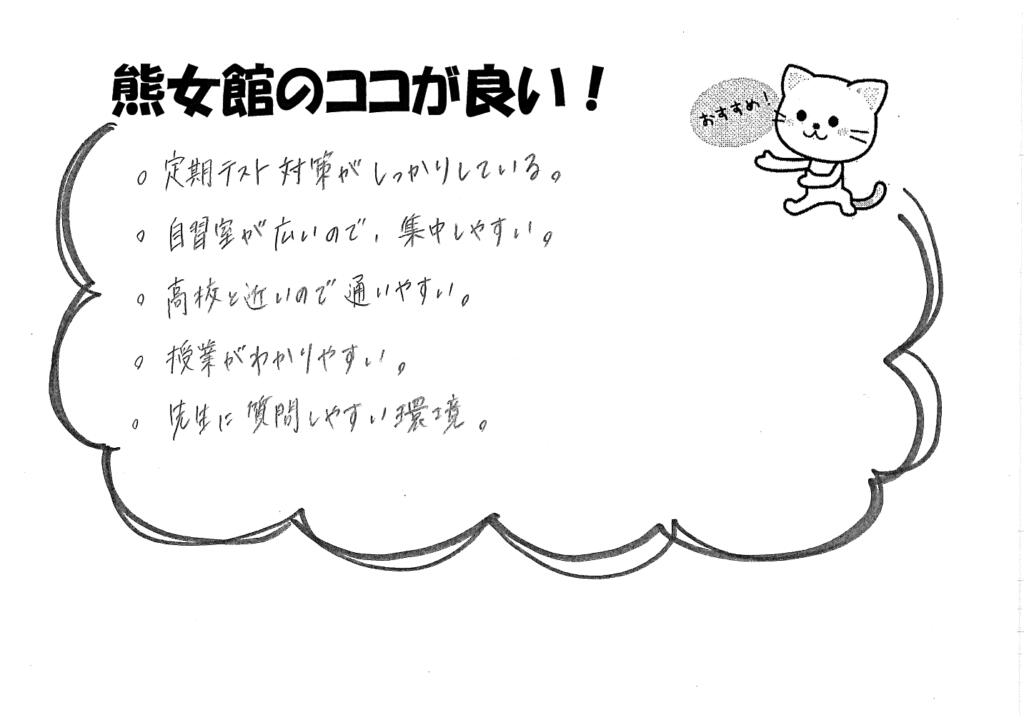 熊女館のココが良い！
おすすめ！
。定期テスト対策がしっかりしている。
。自習室が広いので、集中しやすい。
。高校と近いので通いやすい。
。授業がわかりやすい。
。先生に質問しやすい環境。